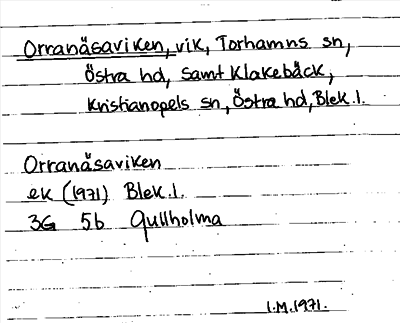 Orranäsaviken, vik, Torhamns sn,
Östra hd, samt Klakebäck,
Kristianopels sn, Östra hd, Blek.l.
Orranäsaviken
ek (1971) Blek.l.
3G 5b Gullholma
I.M.1971.